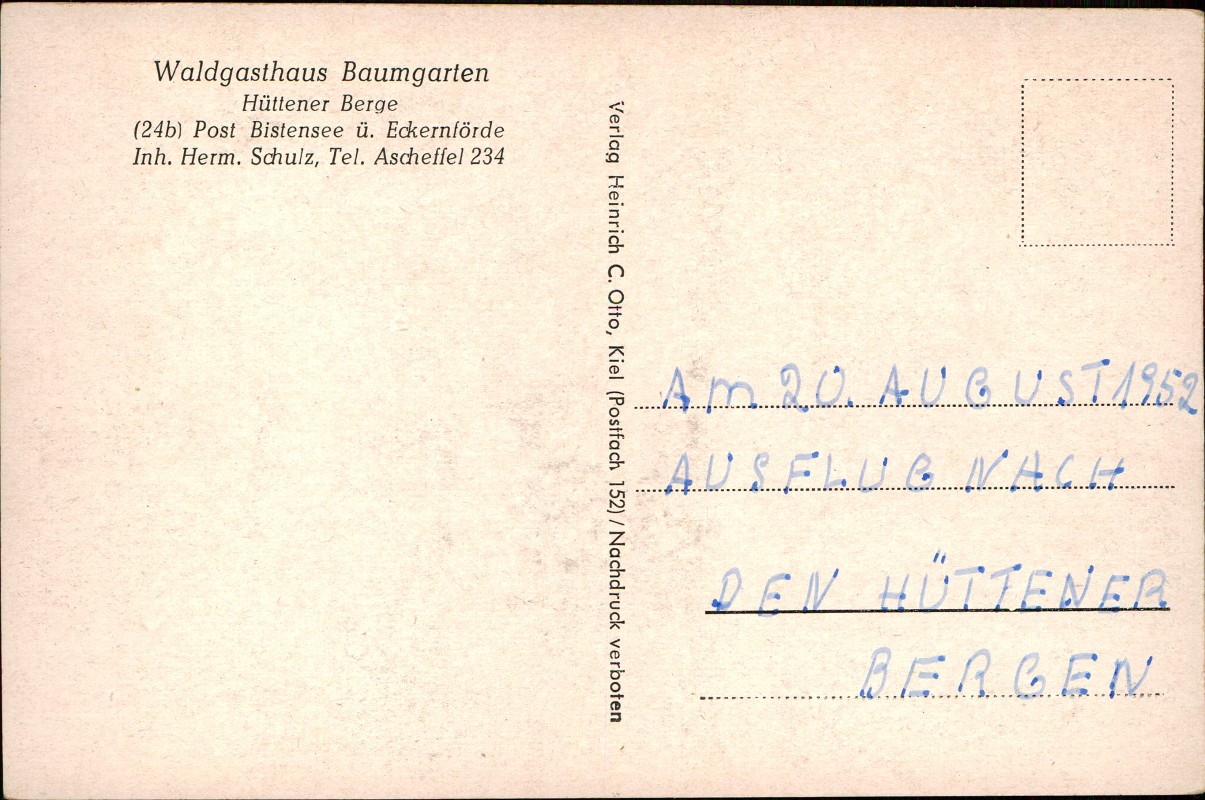 Waldgasthaus Baumgarten
Hüttener Berge
(24b) Post Bistensee ü. Eckernförde
Inh. Herm. Schulz, Tel. Ascheffel 234
Verlag Heinrich C. Otto, Kiel (Postfach 152) / Nachdruck verboten
Am 20. AUGUST 1952
AUSFLUG NACH
DEN HÜTTENER
BERGEN